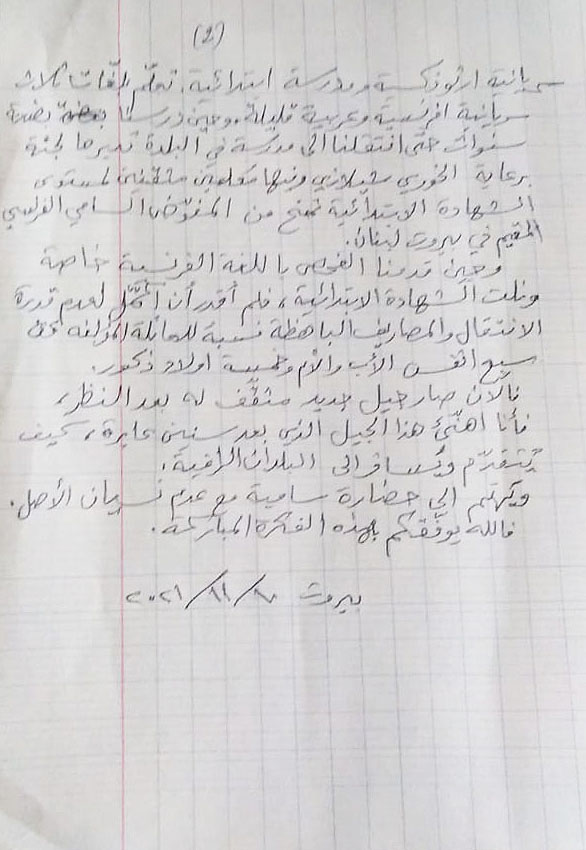 (2)
سريانية ارثوذكسية ومدرسة ابتدائية تعلّم لغات ثلاث
سريانية افرنسية وعربية قليلة. وحين درسنا بضعة
سنوات حتى انتقلنا الى مدرسة في البلدة تديرها لجنة
برعاية الخوري شيلازي وفيها معلمين مثقفين لمستوى
الشهادة الابتدائية تمنح من المفوّض السامي الفرنسي
المقيم في بيروت لبنان.
وحين قدمنا الفحص باللغة الفرنسية خاصة
ونلت الشهادة الابتدائية، فلم أقدر أن اكمّل لعدم قدرة
الانتقال والمصاريف الباهظة نسبة للعائلة المؤلفة من
سبع انفس الأب والأم وخمسة اولاد ذكور.
فالآن صار جيل جديد مثقّف له بعد النظر،
فأنا اهنّئ هذا الجيل الذي بعد سنين عابرة، كيف
يتقدّم ويسافر الى البلدان الراقية.
ويهتم الى حضارة سامية مع عدم نسيان الأصل.
فالله يوفّقكم بهذه الفكرة المباركة.
بيروت ٢٠٢١/١١/